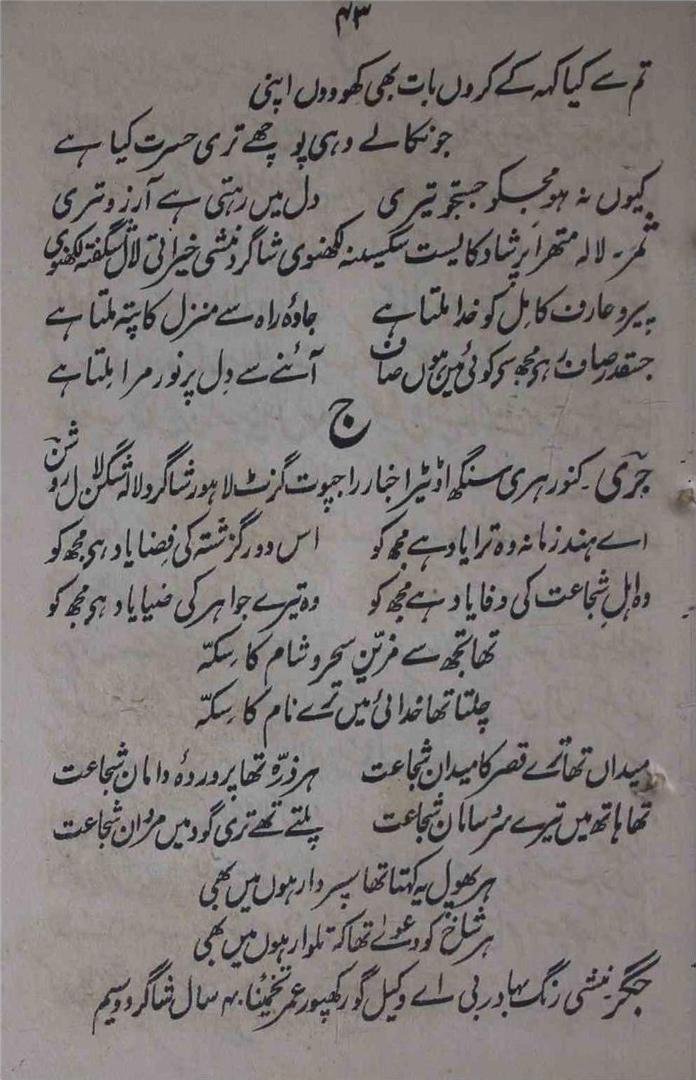 ۴۳
تم سے کیا کہہ کے کروں بات بھی کھووں اپنی
جو نکالے وہی پوچھے تری حسرت کیا ہے
کیوں نہ ہو مجکو جستجو تیری دل میں رہتی ہے آرزو تری
ثمر۔ لالہ متھرا پرشاد کایست سکسینہ لکھنوی شاگرد منشی خیراتی لال شگفتہ لکھنوی
پیرو عارف کامل کو خدا ملتا ہے جادۂ راہ سے منزل کا پتہ ملتا ہے
جسقدر صاف رہی مجھ سی کوئی میں ہوں صاف آئنے سے دل پر نور مرا ملتا ہے
ج
جری۔ کنور ہری سنگھ اڈیٹر اخبار راجپوت گزٹ لاہور شاگرد لالہ شگن لال روشن
اے ہند زمانہ وہ ترا یاد ہے مجھ کو اس دور گزشتہ کی فضا یاد ہی مجھ کو
وہ اہل شجاعت کی وفا یاد ہے مجھ کو وہ تیرے جواہر کی ضیا یاد ہی مجھ کو
تھا تجھ سے مزین سحر و شام کا سکہ
چلتا تھا خدائی میں ترے نام کا سکہ
میداں تھا ترے قصر کا میدان شجاعت ہر ذرہ تھا پروردۂ دامان شجاعت
تھا ہاتھ میں تیرے سر و سامان شجاعت پلتے تھے تری گود میں مردان شجاعت
ہر پھول یہ کہتا تھا سپردار ہوں میں بھی
ہر شاخ کو دعوےٰ تھا کہ تلوار ہوں میں بھی
جگر۔ منشی رنگ بہادر بی اے وکیل گورکھپور عمر تخمیناً ۴۰ سال شاگرد وسیم